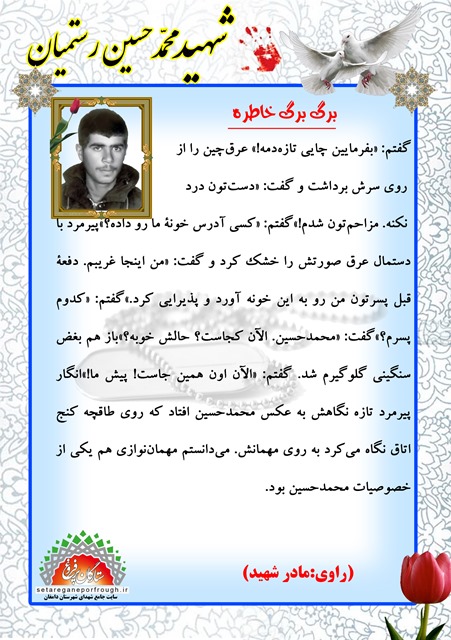 شهید محمّد حسین رستمیان
برگ برگ خاطره
گفتم: «بفرمایین چایی تازه‌دمه!» عرق‌چین را از
روی سرش برداشت و گفت: «دست‌تون درد
نکنه. مزاحم‌تون شدم!»گفتم: «کسی آدرس خونهٔ ما رو داده؟»پیرمرد با
دستمال عرق صورتش را خشک کرد و گفت: «من اینجا غریبم. دفعهٔ
قبل پسرتون من رو به این خونه آورد و پذیرایی کرد.»گفتم: «کدوم
پسرم؟»گفت: «محمدحسین. الآن کجاست؟ حالش خوبه؟»باز هم بغض
سنگینی گلوگیرم شد. گفتم: «الآن اون همین جاست! پیش ما!»انگار
پیرمرد تازه نگاهش به عکس محمدحسین افتاد که روی طاقچه کنج
اتاق نگاه می‌کرد به روی مهمانش. می‌دانستم مهمان‌نوازی هم یکی از
خصوصیات محمدحسین بود.
(راوی:مادر شهید)
ستارگان پرفروغ
setareganeporfrough.ir
سایت جامع شهدای شهرستان دامغان